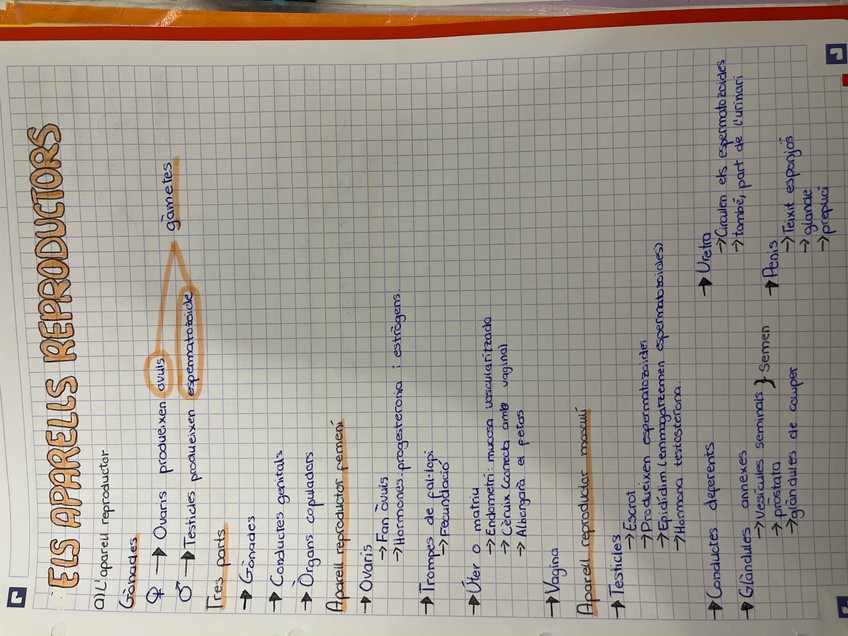 ELS APARELLS REPRODUCTORS
a) L'aparell reproductor
Gònades
♀ → Ovaris produeixen ovuls
♂ → Testicles produeixen espermatozoide
gàmetes
Tres parts
→ Gònades
→ Conductes genitals
→ Òrgans copuladors
Aparell reproductor femení
→ Ovaris
→ Fan òvuls
→ Hormones: progesterona i estrògens.
→ Trompes de fal·lopi
→ Fecundació
→ Úter o matriu
→ Endometri: mucosa vascularitzada
→ Cèrvix (conecta amb vagina)
→ Albergarà el fetus
→ Vagina
Aparell reproductor masculí
→ Testicles
→ Escrot
→ Produeixen espermatozoides
→ Epidídim (emmagatzemen espermatozoides)
→ Hormona testosterona.
→ Conductes deferents
→ Glàndules annexes
→ Vesícules seminals } Semen
→ pròstata
→ glàndules de cowper
→ Uretra
→ Circulen els espermatozoides
→ també, part de l'urinari
→ Penis
→ Teixit esponjós
→ glande
→ prepuci